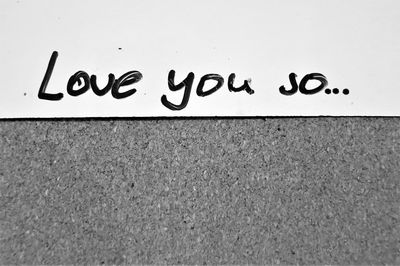 Love you so...